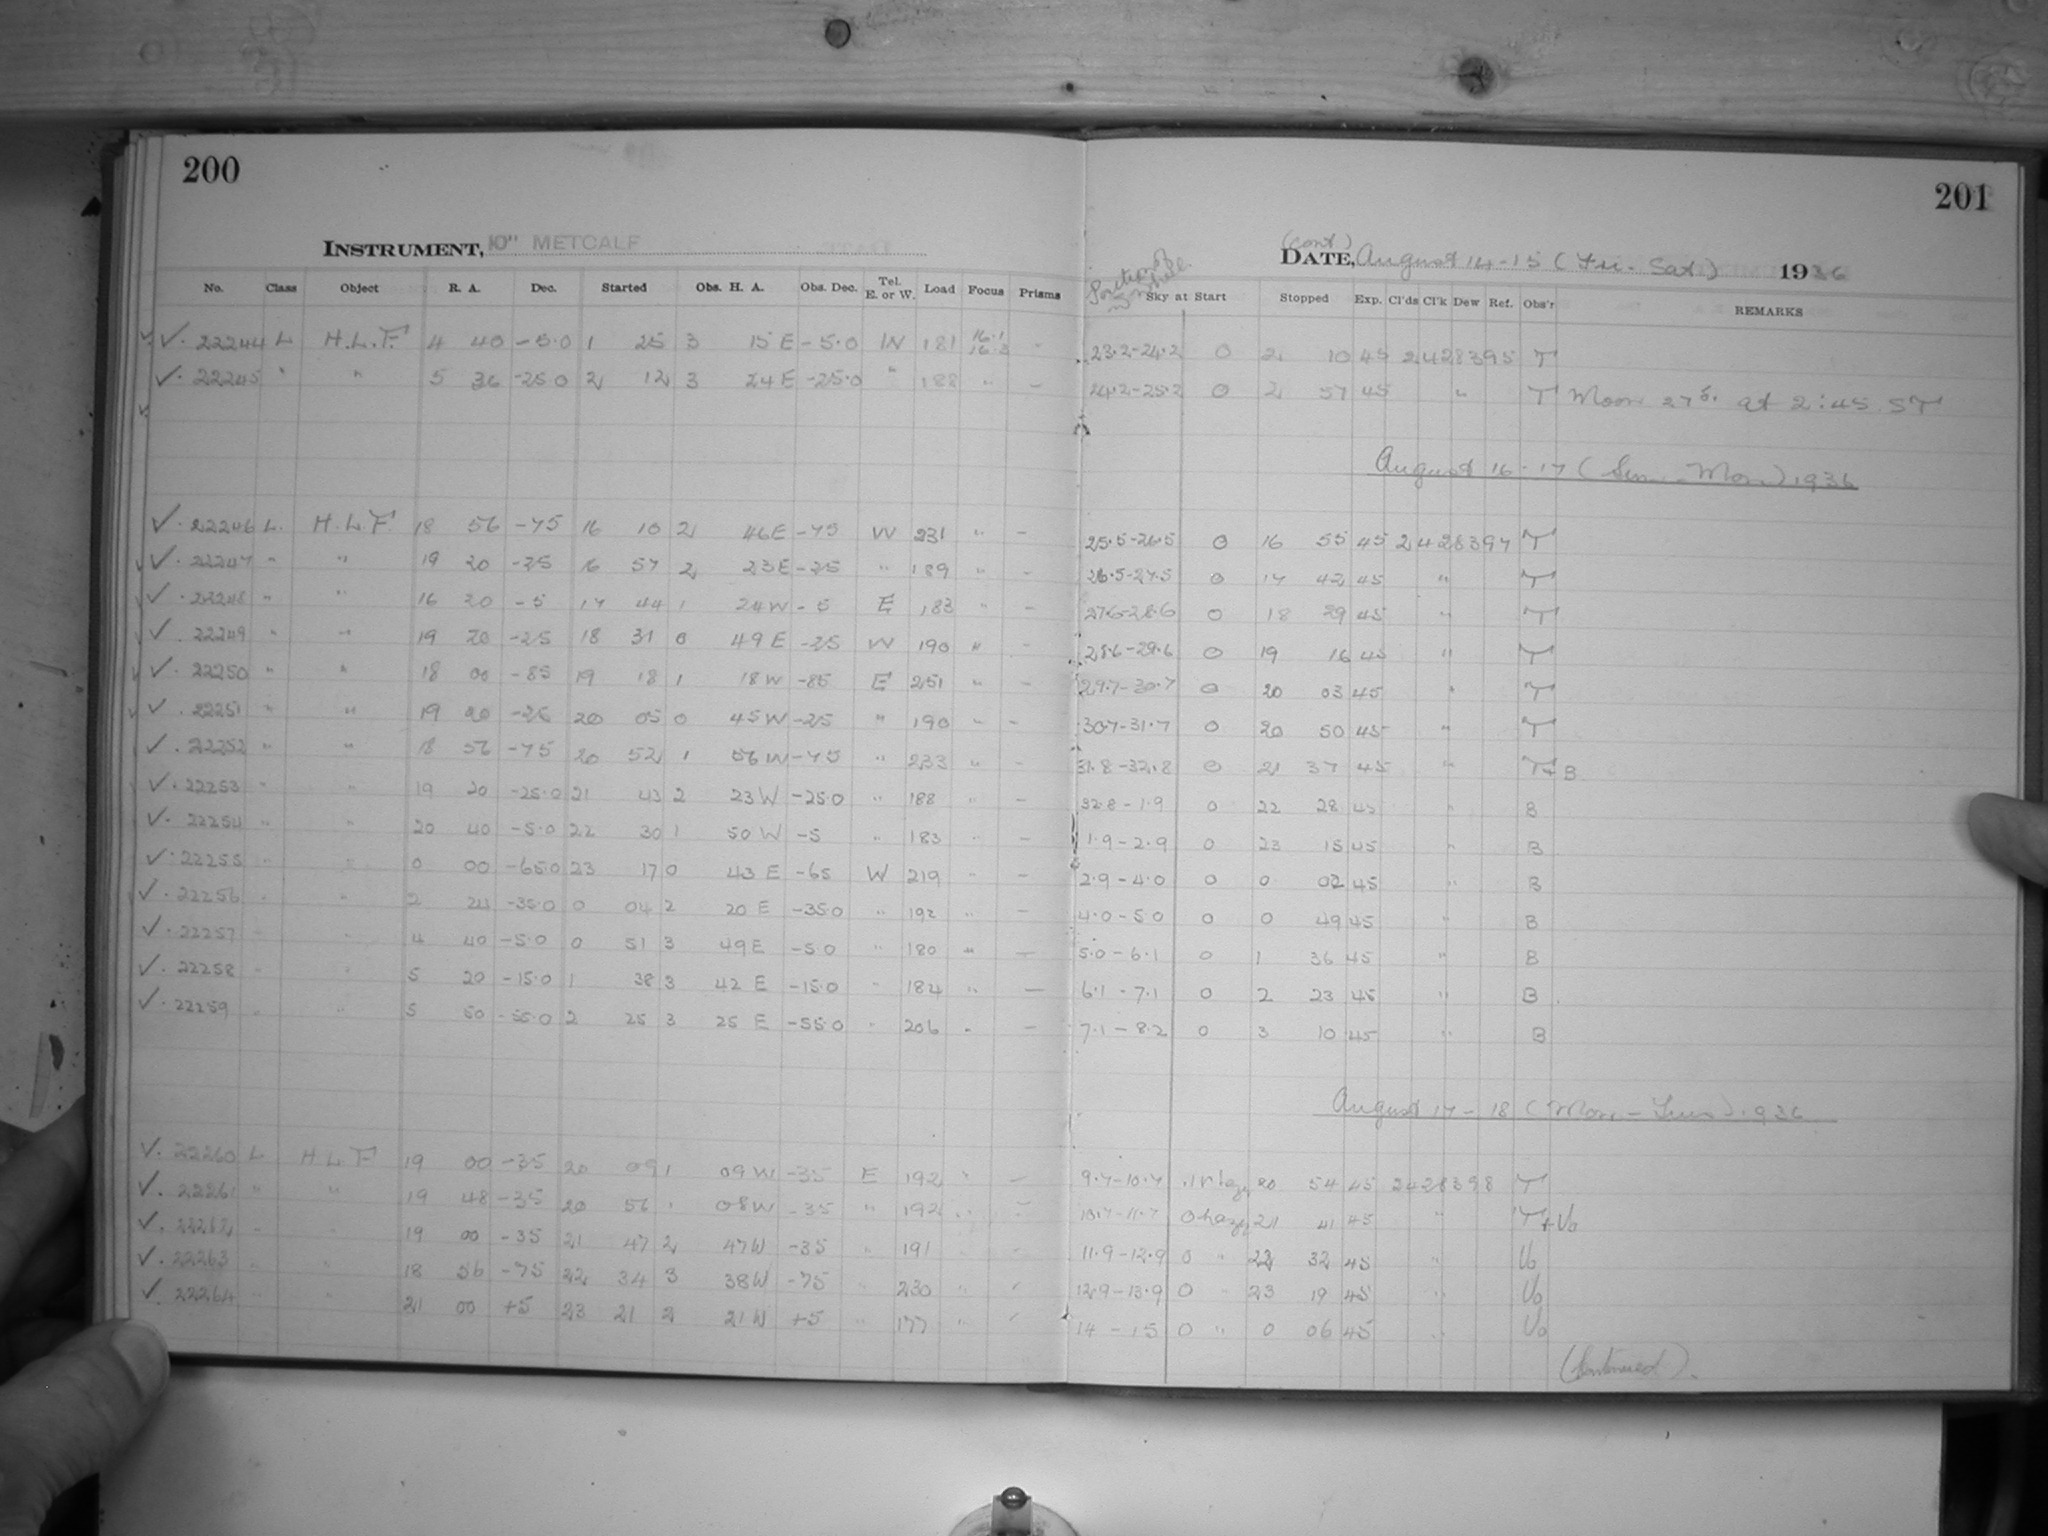 200
201
INSTRUMENT, 10" METCALF
(cont)
DATE, August 14-15 (Fri. Sat) 1936
No. Class Object R. A. Dec. Started Obs. H. A. Obs. Dec. Tel. E. or W. Load Focus Prisms Position of Sky at Start Stopped Exp. Cl'ds Cl'k Dew Ref. Obs'r REMARKS
✓. 22244 L H.L.F. 4 40 -5.0 1 25 3 15 E -5.0 W 181 16.1 - 23.2-24.2 0 2 10 45 2428395 T
✓. 22245 " " 5 36 -25.0 2 12 3 24 E -25.0 " 188 " - 24.2-25.2 0 2 57 45 " T Moon at 2:45 ST
August 16-17 (Sun.-Mon.) 1936
✓. 22246 L. H.L.F. 18 56 -75 16 10 2 46 E -75 W 231 " - 25.5-26.5 0 16 55 45 2428397 T
✓. 22247 " " 19 20 -25 16 57 2 23 E -25 " 189 " - 26.5-27.5 0 17 42 45 " T
✓. 22248 " " 16 20 -5 17 44 1 24 W -5 E 183 " - 27.6-28.6 0 18 29 45 " T
✓. 22249 " " 19 20 -25 18 31 0 49 E -25 W 190 " - 28.6-29.6 0 19 16 45 " T
✓. 22250 " " 18 00 -85 19 18 1 18 W -85 E 251 " - 29.7-30.7 0 20 03 45 " T
✓. 22251 " " 19 20 -25 20 05 0 45 W -25 " 190 " - 30.7-31.7 0 20 50 45 " T
✓. 22252 " " 18 56 -75 20 52 1 56 W -75 " 233 " - 31.8-32.8 0 21 37 45 " T+B
✓. 22253 " " 19 20 -25.0 21 43 2 23 W -25.0 " 188 " - 32.8-1.9 0 22 28 45 " B
✓. 22254 " " 20 40 -5.0 22 30 1 50 W -5 " 183 " - 1.9-2.9 0 23 15 45 " B
✓. 22255 " " 0 00 -65.0 23 17 0 43 E -65 W 219 " - 2.9-4.0 0 0 02 45 " B
✓. 22256 " " 2 24 -35.0 0 04 2 20 E -35.0 " 192 " - 4.0-5.0 0 0 49 45 " B
✓. 22257 " " 4 40 -5.0 0 51 3 49 E -5.0 " 180 " - 5.0-6.1 0 1 36 45 " B
✓. 22258 " " 5 20 -15.0 1 38 3 42 E -15.0 " 184 " - 6.1-7.1 0 2 23 45 " B
✓. 22259 " " 5 50 -55.0 2 25 3 25 E -55.0 " 206 " - 7.1-8.2 0 3 10 45 " B
August 17-18 (Mon.-Tues) 1936
✓. 22260 L H L F 19 00 -35 20 09 1 09 W -35 E 192 " - 9.7-10.7 20 54 45 2428398 T
✓. 22261 " " 19 48 -35 20 56 1 08 W -35 " 192 " - 10.7-11.7 0 hazy 21 41 45 " T+Vo
✓. 22262 " " 19 00 -35 21 47 2 47 W -35 " 191 " - 11.9-12.9 0 " 22 32 45 " Vo
✓. 22263 " " 18 56 -75 22 34 3 38 W -75 " 230 " - 12.9-13.9 0 " 23 19 45 " Vo
✓. 22264 " " 21 00 +5 23 21 2 21 W +5 " 177 " - 14-15 0 " 0 06 45 " Vo
(Continued).